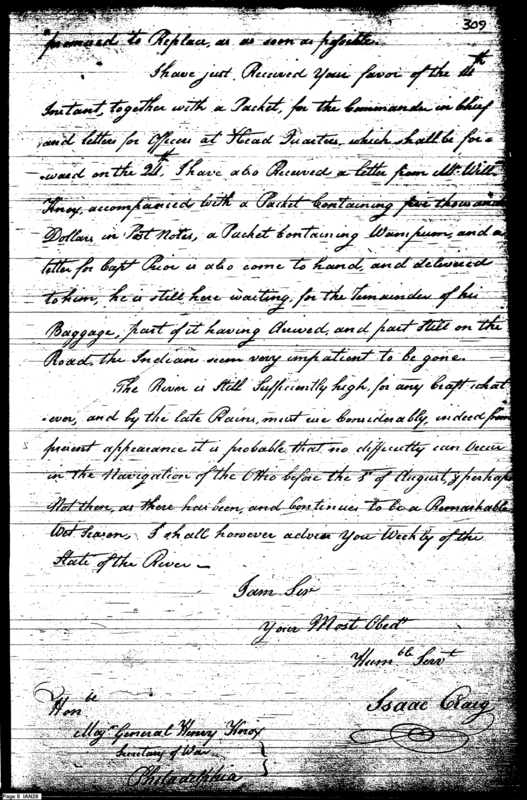 309
promised to Replace, as as soon as possible.
I have just Received Your favor of the 14th
Instant, together with a Packet, for the Commander in Chief
and letters for Officers at Head Quarters, which shall be for=
=ward on the 24th. I have also Received a letter from Mr. Willm
Knox, accompanied with a Packet Containing five thousand
Dollars in Post Notes, a Packet Containing Wampum, and a
letter for Capt Prior is also come to hand, and delivered
to him, he is still here waiting, for the remainder of his
Baggage, part of it having Arived, and part Still on the
Road, the Indians seem very impatient to be gone.
The River is Still Sufficiently high, for any Craft what
=ever, and by the late Rains, must rise Considerably, indeed from
present appearance it is probable that no difficulty can Occur
in the Navigation of the Ohio before the 1st of August, & perhaps
Not then, as there has been, and Continues to be a Remarkable
Wet Season. I shall however advise You Weekly of the
State of the River —
I am Sir
Your Most Obedt
Humble Servt
Isaac Craig
Honble
Majr General Henry Knox
Secretary of War
Philadelphia
Page 5 IAN28